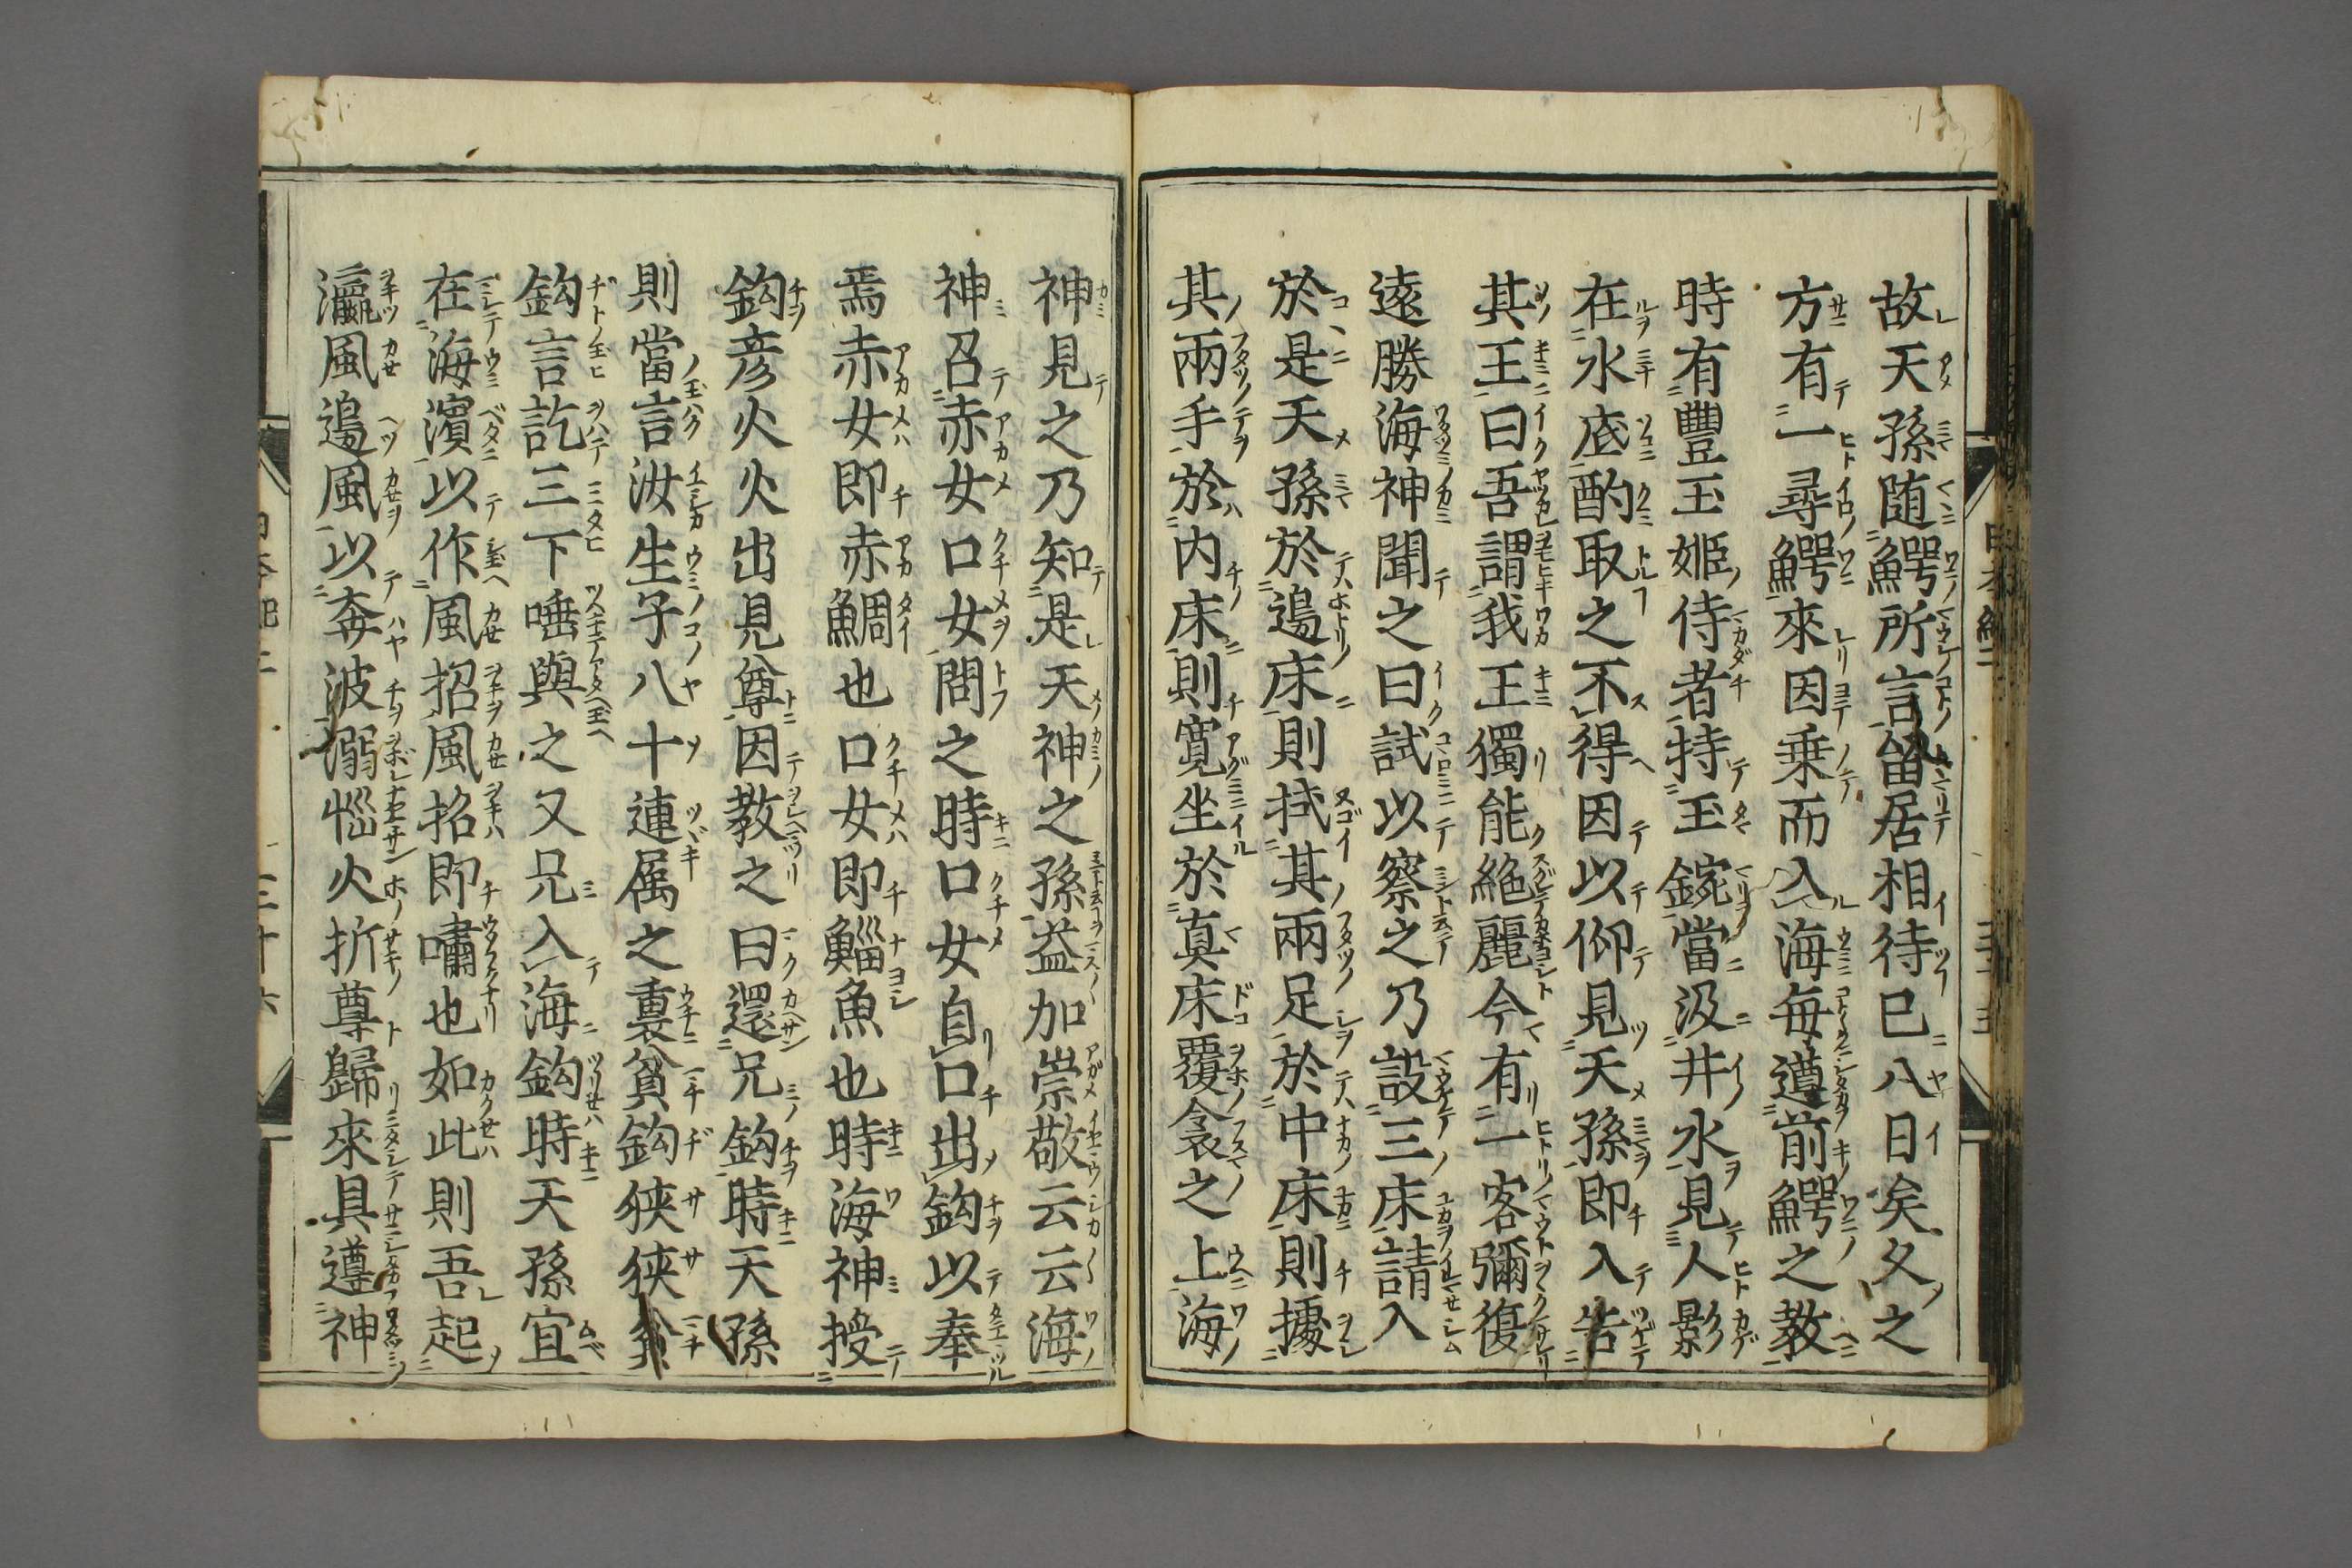 故天孫随鰐所言留居相待已八日矣久之
方有一尋鰐來因乗而入海毎遵前鰐之教
時有豐玉姫侍者持玉鋺當汲井水見人影
在水底酌取之不得因以仰見天孫即入告
其王曰吾謂我王獨能絶麗今有一客彌復
遠勝海神聞之曰試以察之乃設三床請入
於是天孫於邊床則拭其兩足於中床則據
其兩手於内床則寛坐於真床覆衾之上海
神見之乃知是天神之孫益加崇敬云云海
神召赤女口女問之時口女自口出鈎以奉
焉赤女即赤鯛也口女即鯔魚也時海神授
鈎彦火火出見尊因教之曰還兄鈎時天孫
則當言汝生子八十連属之裏貧鈎狭狭貧
鈎言訖三下唾與之又兄入海鈎時天孫宜
在海濱以作風招風招即嘯也如此則吾起
瀛風邊風以奔波溺惱火折尊歸來具遵神
日本紀二
三十五
日本紀二
三十六